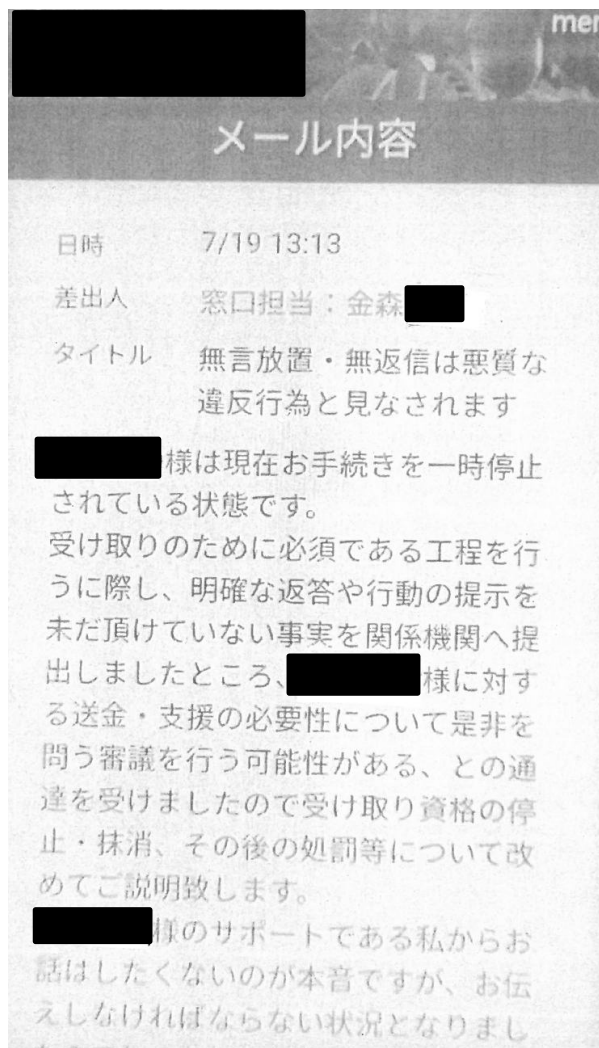 mer
メール内容
日時 7/19 13:13
差出人 窓口担当：金森
タイトル 無言放置・無返信は悪質な
違反行為と見なされます
様は現在お手続きを一時停止
されている状態です。
受け取りのために必須である工程を行
うに際し、明確な返答や行動の提示を
未だ頂けていない事実を関係機関へ提
出しましたところ、様に対す
る送金・支援の必要性について是非を
問う審議を行う可能性がある、との通
達を受けましたので受け取り資格の停
止・抹消、その後の処罰等について改
めてご説明致します。
様のサポートである私からお
話はしたくないのが本音ですが、お伝
えしなければならない状況となりまし